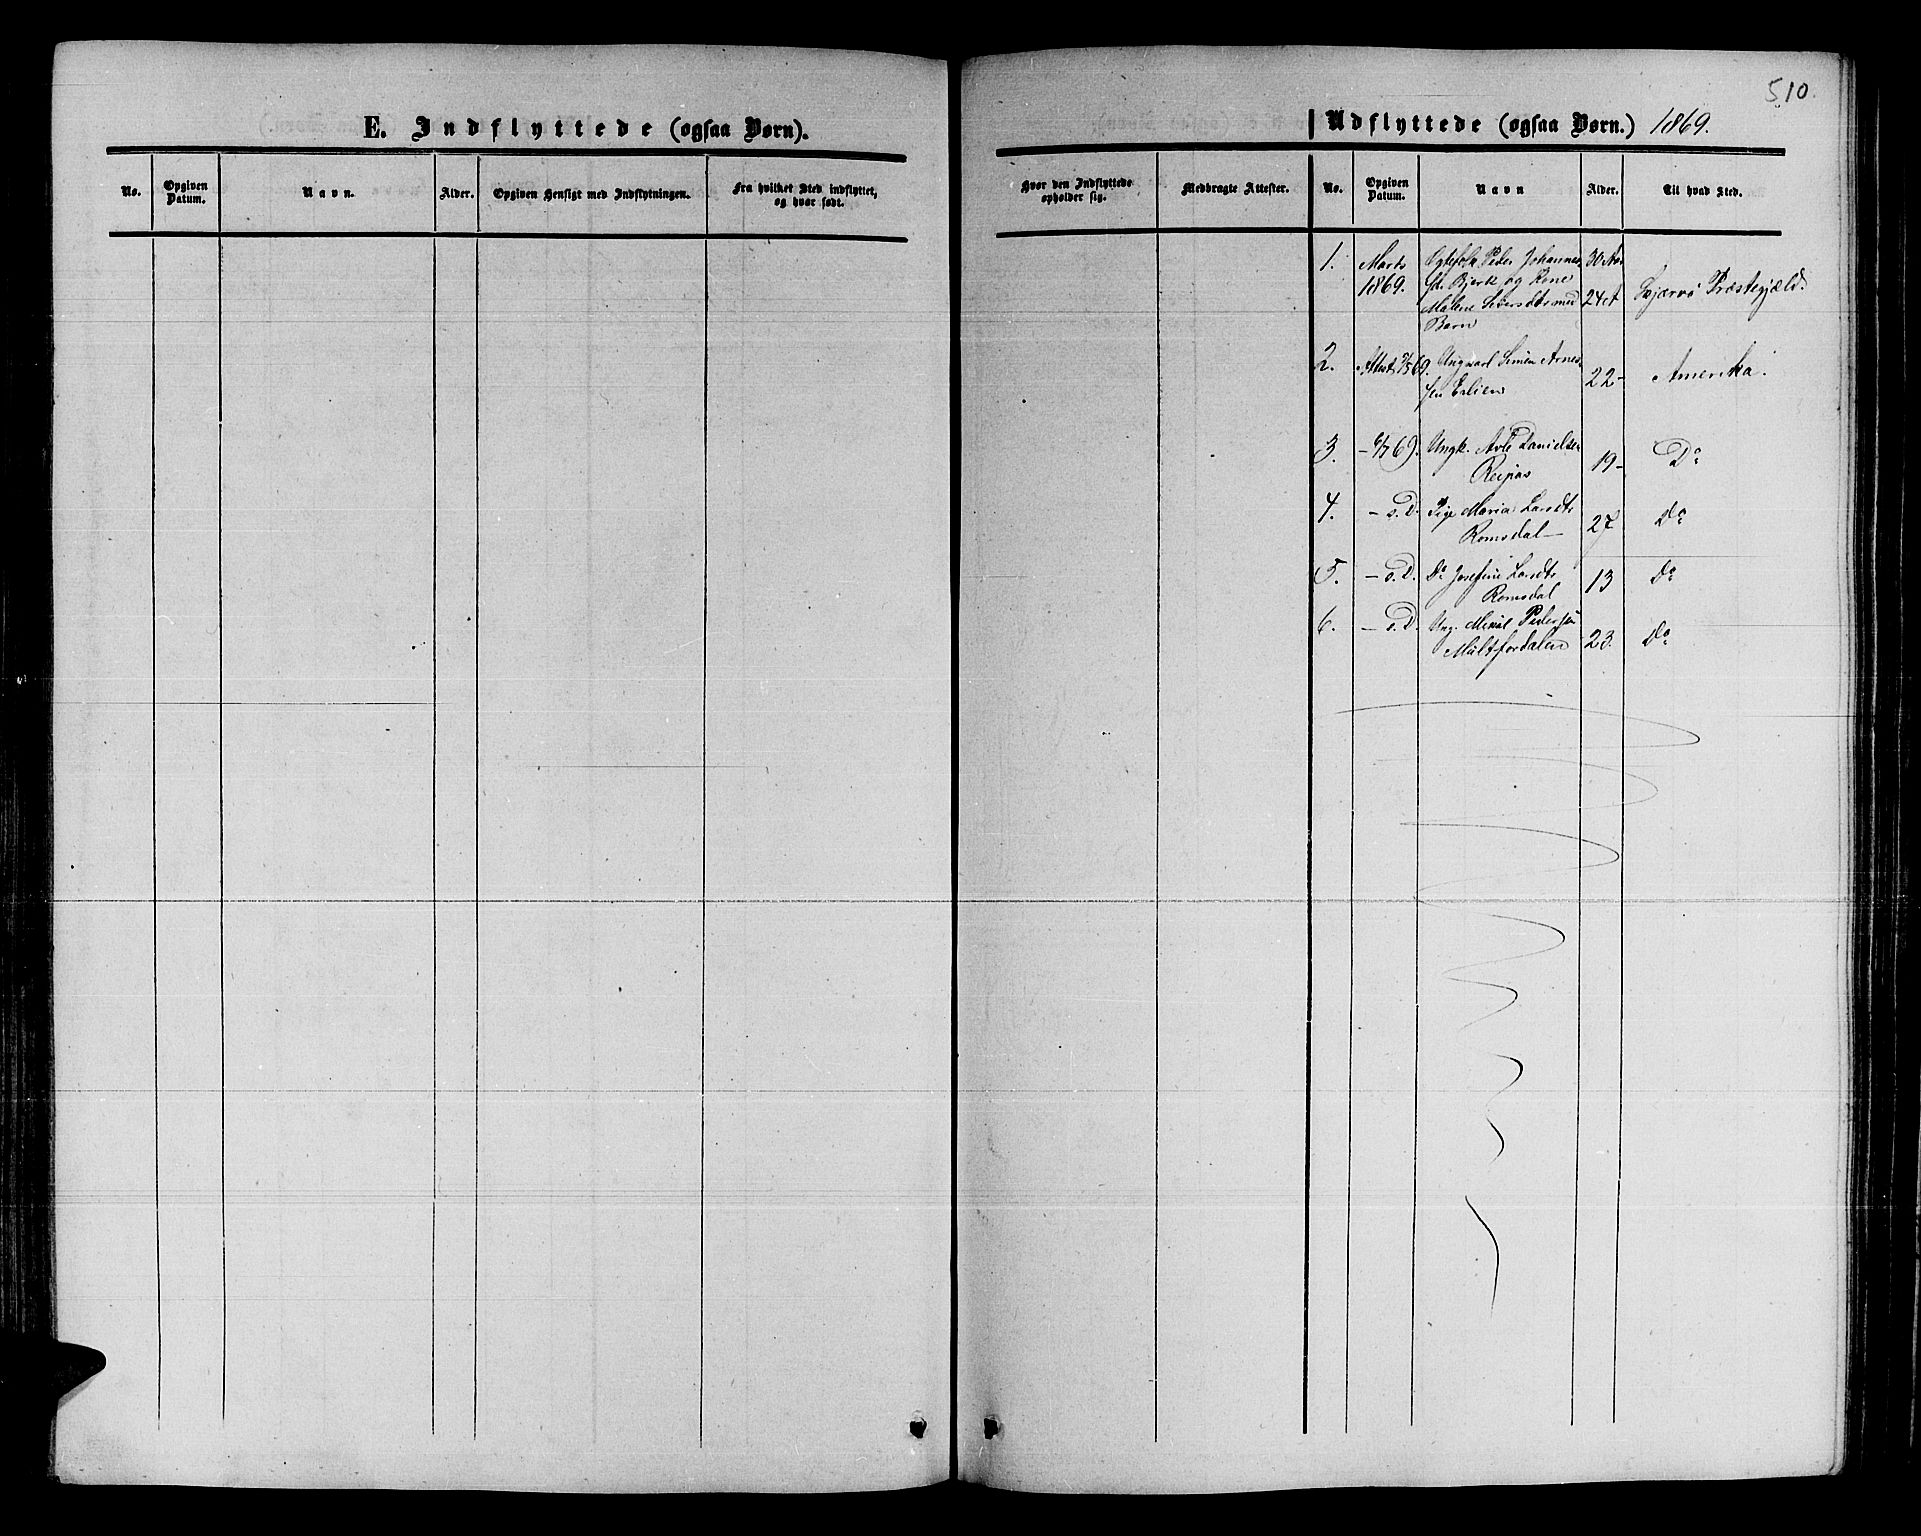 510.
E. Indflyttede (ogsaa Børn).
No.
Opgiven Datum.
Navn.
Alder.
Opgiven Hensigt med Indflytningen.
Fra hvilket Sted indflyttet, og hvor født.
Hvor den Indflyttede opholder sig.
Medbragte Attester.
Udflyttede (ogsaa Børn.) 1869.
No.
Opgiven Datum.
Navn
Alder.
Til hvad Sted.
1. Marts 1869. Peder Johannes-
sen Bjerk og Kone
Malene Siversdtr med
Barn
30 Aar
24 Skjærvø Præstegjæld.
2. Attest 69. Ungkarl Simen Arnes-
sen Erlien 22- Amerika.
3. - 69. Ungk. Danielsen
Reipas 19- Do
4. - s. D. Pige Maria Larsdtr
Romsdal 27 Do
5. - s. D. Do Josefine Larsdtr
Romsdal 13 Do
6. - s. D. Ung. Mikal Pedersen
23. Do